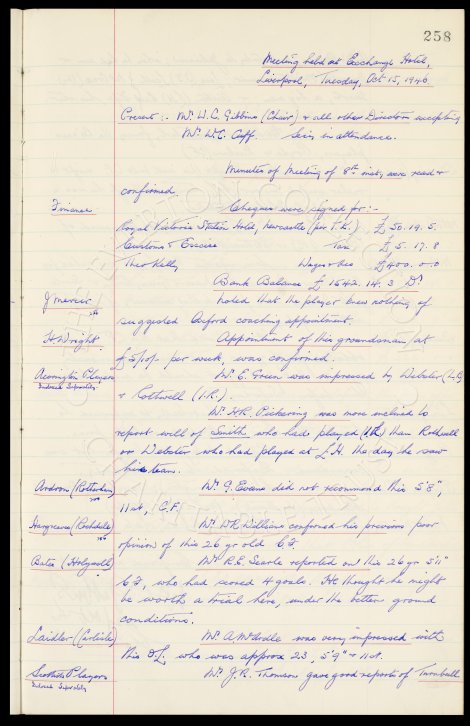 258
Meeting held at Exchange Hotel,
Liverpool, Tuesday, Oct 15, 1946
Present :- Mr. W.C. Gibbins (Chair) & all other Directors excepting
Mr. W.C. Cuff. Secy. in attendance.
Minutes of Meeting of 8th inst, were read &
confirmed.
Finance Cheques were signed for:-
Royal Victoria Station Hotel, Newcastle (per T.K.) £ 50. 19. 5.
Customs & Excise Tax £ 5. 17. 8
Theo Kelly Wages &c £400. 0. 0
Bank Balance £ 1542. 14. 3 Dr
J Mercer Noted that the player knew nothing of
suggested Oxford coaching appointment.
H. Wright. Appointment of this groundsman, at
£5/10/- per week, was confirmed.
Accrington Players Mr. E. Green was impressed by Webster (L.H)
& Rothwell (I.R.).
Mr. H.R. Pickering was more inclined to
report well of Smith who had played (I.R.) than Rothwell
or Webster who had played at L.H. the day he saw
his team.
(Rotterham) Mr. G. Evans did not recommend this 5'8",
11st, C.F.
Hargreaves (Rochdale) Mr. W.R. Williams confirmed his previous poor
opinion of this 26 yr old C.F.
Bates (Holywell) Mr. R.E. Searle reported on this 26 yr 5'11"
C.F., who had scored 4 goals. He thought he might
be worth a trial here, under the better ground
conditions.
Laidler (Carlisle) Mr. A McArdle was very impressed with
this O.L. who was approx 23, 5'9" & 11st.
Scottish Players Mr. J.R. Thomson gave good reports of Turnbull